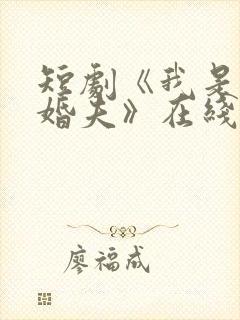 短劇《我是
婚夫》在綫
廖福成